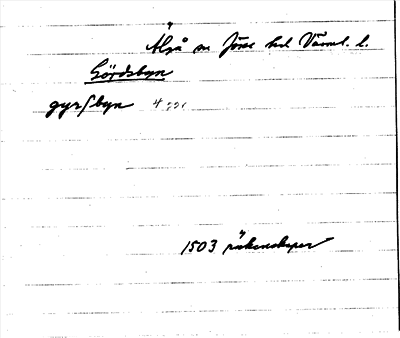 Älgå sn Jöse hd Värml. l.
Gördsbyn
gyrsbyn
1503 räkenskaper